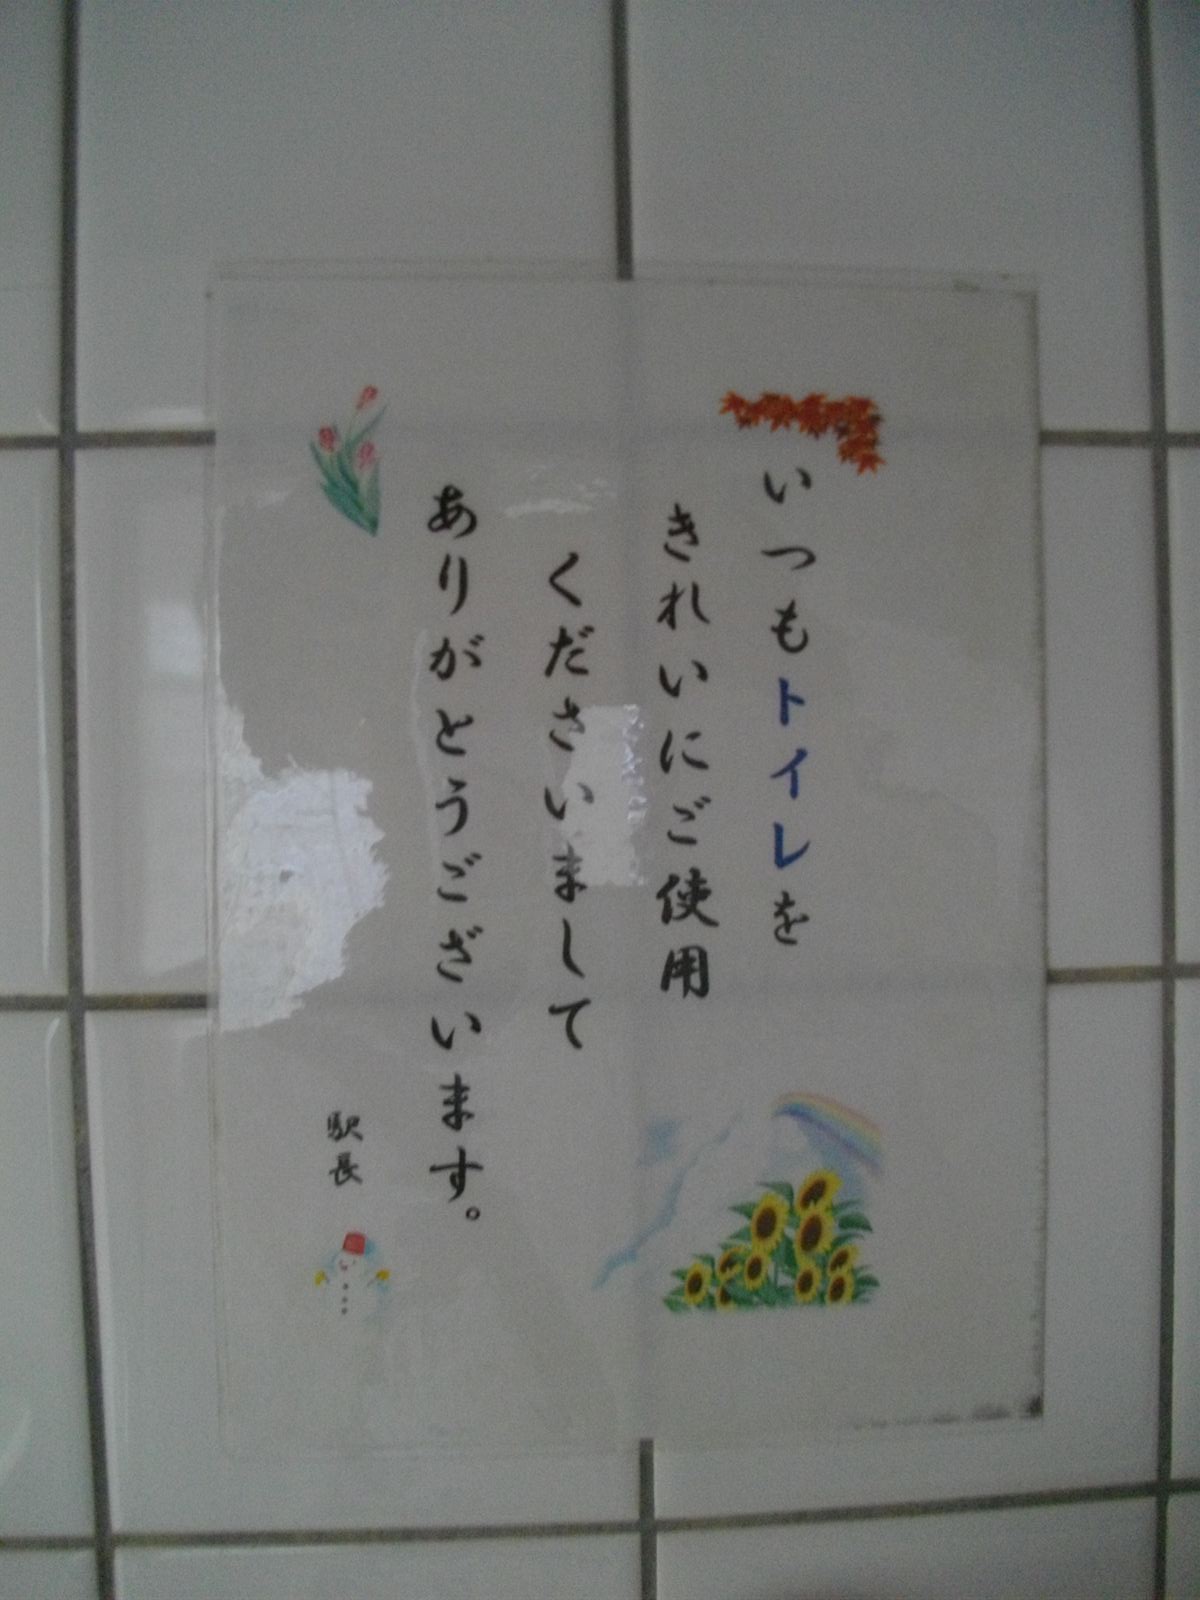 いつもトイレを
きれいにご使用
くださいまして
ありがとうございます。
駅長